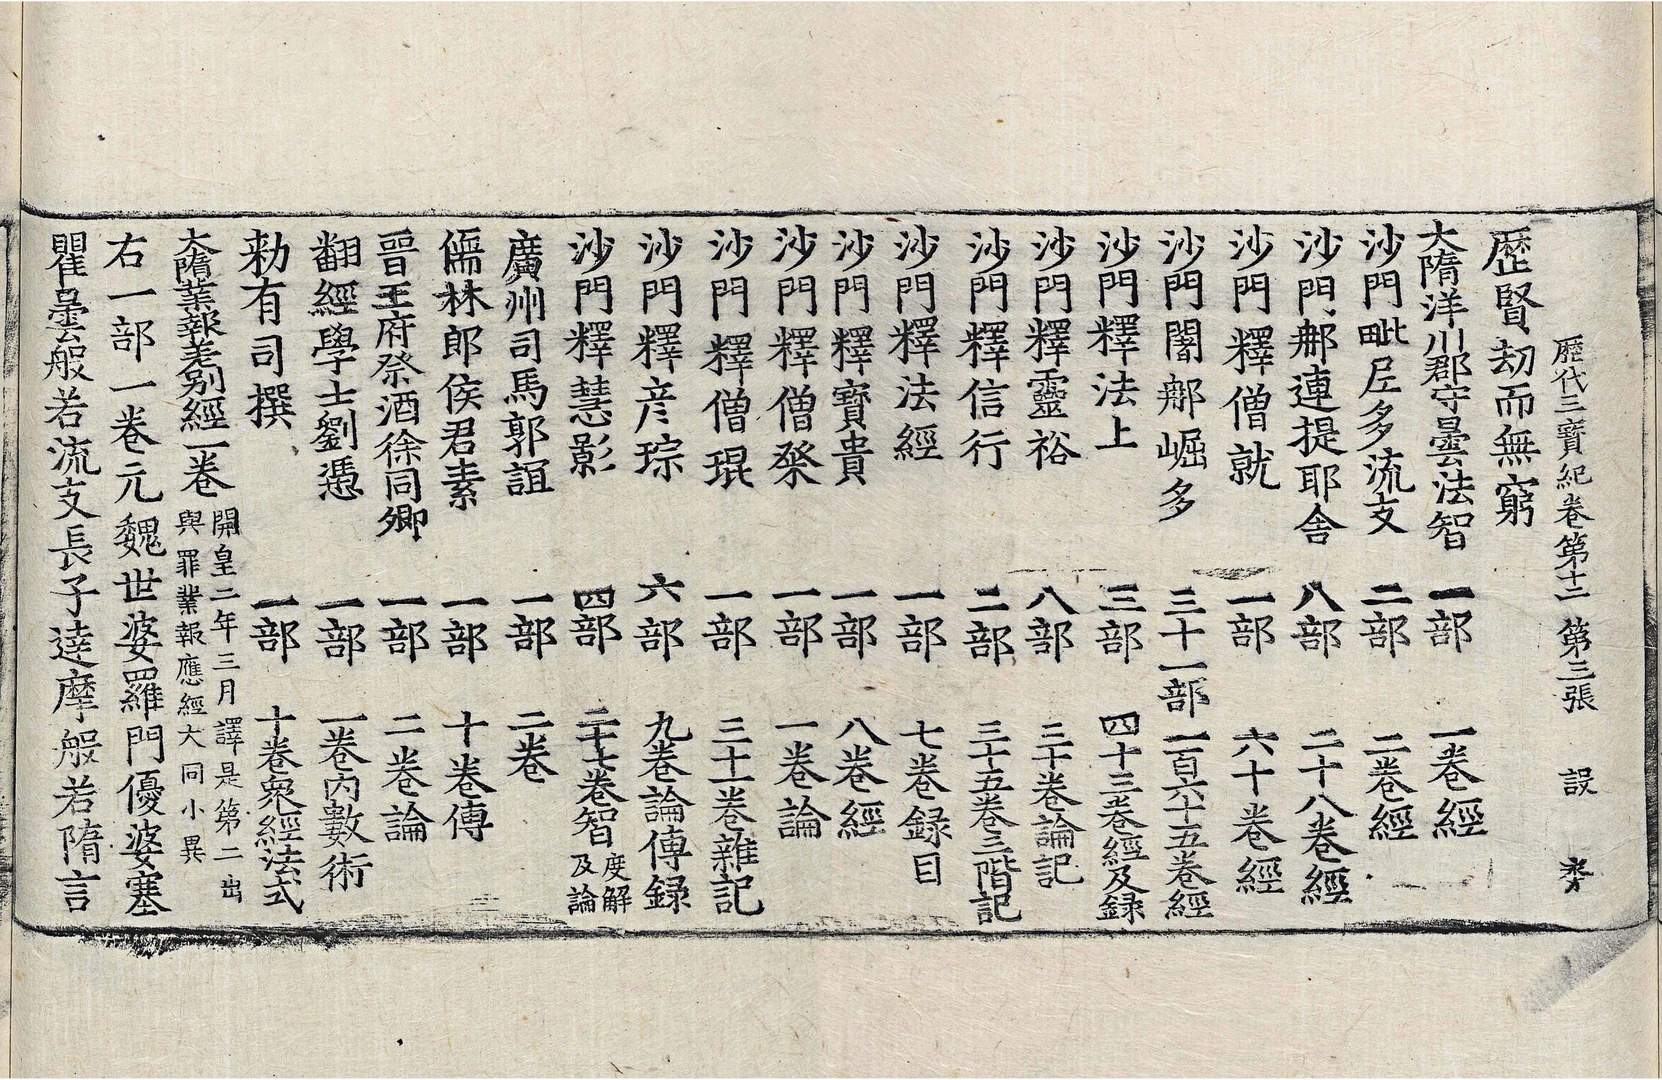 歷代三寶紀卷第十二 第三張 設
歷賢劫而無窮
大隋洋川郡守曇法智 一部 一卷經
沙門毗尼多流支 二部 二卷經
沙門那連提耶舍 八部 二十八卷經
沙門釋僧就 一部 六十卷經
沙門闍那崛多 三十一部 一百六十五卷經
沙門釋法上 三部 四十三卷經及録
沙門釋靈裕 八部 三十卷論記
沙門釋信行 二部 三十五卷三階記
沙門釋法經 一部 七卷録目
沙門釋寶貴 一部 八卷經
沙門釋僧粲 一部 一卷論
沙門釋僧琨 一部 三十一卷雜記
沙門釋彦琮 六部 九卷論傳録
沙門釋慧影 四部 二十七卷智度解及論
廣州司馬郭誼 一部 二卷
儒林郎侯君素 一部 十卷傳
晋王府祭酒徐同卿 一部 二卷論
翻經學士劉憑 一部 一卷内數術
勑有司撰 一部 十卷衆經法式
大隋業報差別經一卷 開皇二年三月譯是第二出與罪業報應經大同小異
右一部一卷元魏世婆羅門優婆塞
瞿曇般若流支長子達摩般若隋言